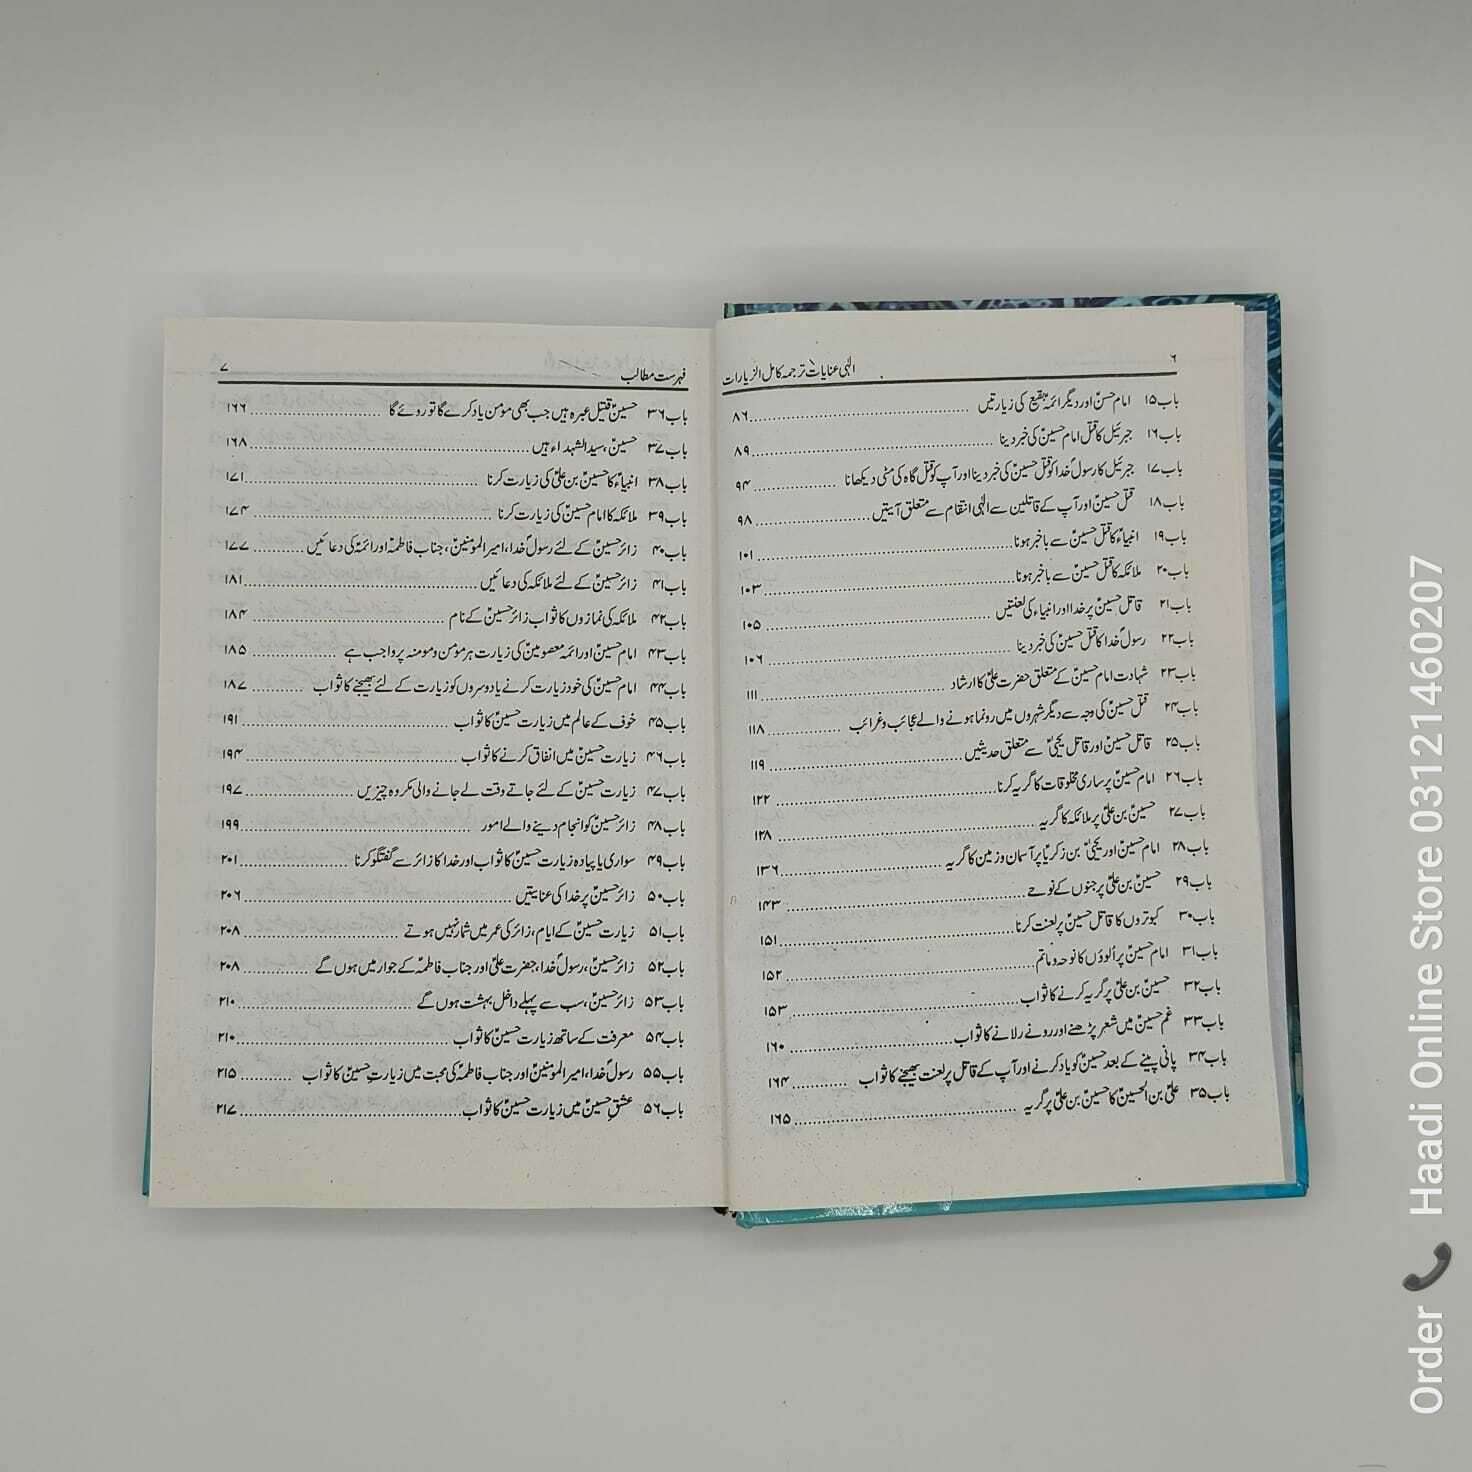 ۶
الٰہی عنایات ترجمہ کامل الزیارات
باب۱۵ امام حسنؑ اور دیگر ائمہ بقیعؑ کی زیارتیں ........ ۸۶
باب۱۶ جبرئیل کا قتل امام حسینؑ کی خبر دینا ........ ۸۹
باب۱۷ جبرئیل کا رسولؐ خدا کو قتل حسینؑ کی خبر دینا اور آپ کو قتل گاہ کی مٹی دیکھانا ........ ۹۴
باب۱۸ قتل حسینؑ اور آپ کے قاتلین سے الٰہی انتقام سے متعلق آیتیں ........ ۹۸
باب۱۹ انبیاءؑ کا قتل حسینؑ سے باخبر ہونا ........ ۱۰۱
باب۲۰ ملائکہ کا قتل حسینؑ سے باخبر ہونا ........ ۱۰۳
باب۲۱ قاتل حسینؑ پر خدا اور انبیاء کی لعنتیں ........ ۱۰۵
باب۲۲ رسولؐ خدا کا قتل حسینؑ کی خبر دینا ........ ۱۰۶
باب۲۳ شہادت امام حسینؑ کے متعلق حضرت علیؑ کا ارشاد ........ ۱۱۱
باب۲۴ قتل حسینؑ کی وجہ سے دیگر شہروں میں رونما ہونے والے عجائب و غرائب ........ ۱۱۸
باب۲۵ قاتل حسینؑ اور قاتل یحییٰؑ سے متعلق حدیثیں ........ ۱۱۹
باب۲۶ امام حسینؑ پر ساری مخلوقات کا گریہ کرنا ........ ۱۲۲
باب۲۷ حسینؑ بن علیؑ پر ملائکہ کا گریہ ........ ۱۲۸
باب۲۸ امام حسینؑ اور یحییٰؑ بن زکریاؑ پر آسمان و زمین کا گریہ ........ ۱۳۶
باب۲۹ حسینؑ بن علیؑ پر جنوں کے نوحے ........ ۱۴۳
باب۳۰ کبوتروں کا قاتل حسینؑ پر لعنت کرنا ........ ۱۵۱
باب۳۱ امام حسینؑ پر اُلوؤں کا نوحہ و ماتم ........ ۱۵۲
باب۳۲ حسینؑ بن علیؑ پر گریہ کرنے کا ثواب ........ ۱۵۳
باب۳۳ غم حسینؑ میں شعر پڑھنے اور رونے رلانے کا ثواب ........ ۱۶۰
باب۳۴ پانی پینے کے بعد حسینؑ کو یاد کرنے اور آپ کے قاتل پر لعنت بھیجنے کا ثواب ........ ۱۶۴
باب۳۵ علیؑ بن الحسینؑ کا حسینؑ بن علیؑ پر گریہ ........ ۱۶۵
فہرست مطالب
۷
باب۳۶ حسینؑ قتیل عبرہ ہیں جب بھی مؤمن یاد کرے گا تو روئے گا ........ ۱۶۶
باب۳۷ حسینؑ، سید الشہداء ہیں ........ ۱۶۸
باب۳۸ انبیاءؑ کا حسینؑ بن علیؑ کی زیارت کرنا ........ ۱۷۱
باب۳۹ ملائکہ کا امام حسینؑ کی زیارت کرنا ........ ۱۷۴
باب۴۰ زائر حسینؑ کے لئے رسولؐ خدا، امیر المومنینؑ، جناب فاطمہؑ اور ائمہؑ کی دعائیں ........ ۱۷۷
باب۴۱ زائر حسینؑ کے لئے ملائکہ کی دعائیں ........ ۱۸۱
باب۴۲ ملائکہ کی نمازوں کا ثواب زائر حسینؑ کے نام ........ ۱۸۴
باب۴۳ امام حسینؑ اور ائمہ معصومینؑ کی زیارت ہر مؤمن و مومنہ پر واجب ہے ........ ۱۸۵
باب۴۴ امام حسینؑ کی خود زیارت کرنے یا دوسروں کو زیارت کے لئے بھیجنے کا ثواب ........ ۱۸۷
باب۴۵ خوف کے عالم میں زیارت حسینؑ کا ثواب ........ ۱۹۱
باب۴۶ زیارت حسینؑ میں انفاق کرنے کا ثواب ........ ۱۹۴
باب۴۷ زیارت حسینؑ کے لئے جاتے وقت لے جانے والی مکروہ چیزیں ........ ۱۹۷
باب۴۸ زائر حسینؑ کو انجام دینے والے امور ........ ۱۹۹
باب۴۹ سواری یا پیادہ زیارت حسینؑ کا ثواب اور خدا کا زائر سے گفتگو کرنا ........ ۲۰۱
باب۵۰ زائر حسینؑ پر خدا کی عنایتیں ........ ۲۰۶
باب۵۱ زیارت حسینؑ کے ایام، زائر کی عمر میں شمار نہیں ہوتے ........ ۲۰۸
باب۵۲ زائر حسینؑ، رسولؐ خدا، حضرت علیؑ اور جناب فاطمہؑ کے جوار میں ہوں گے ........ ۲۰۸
باب۵۳ زائر حسینؑ، سب سے پہلے داخل بہشت ہوں گے ........ ۲۱۰
باب۵۴ معرفت کے ساتھ زیارت حسینؑ کا ثواب ........ ۲۱۰
باب۵۵ رسولؐ خدا، امیر المومنینؑ اور جناب فاطمہؑ کی محبت میں زیارتِ حسینؑ کا ثواب ........ ۲۱۵
باب۵۶ عشقِ حسینؑ میں زیارت حسینؑ کا ثواب ........ ۲۱۷
Order Haadi Online Store 03121460207